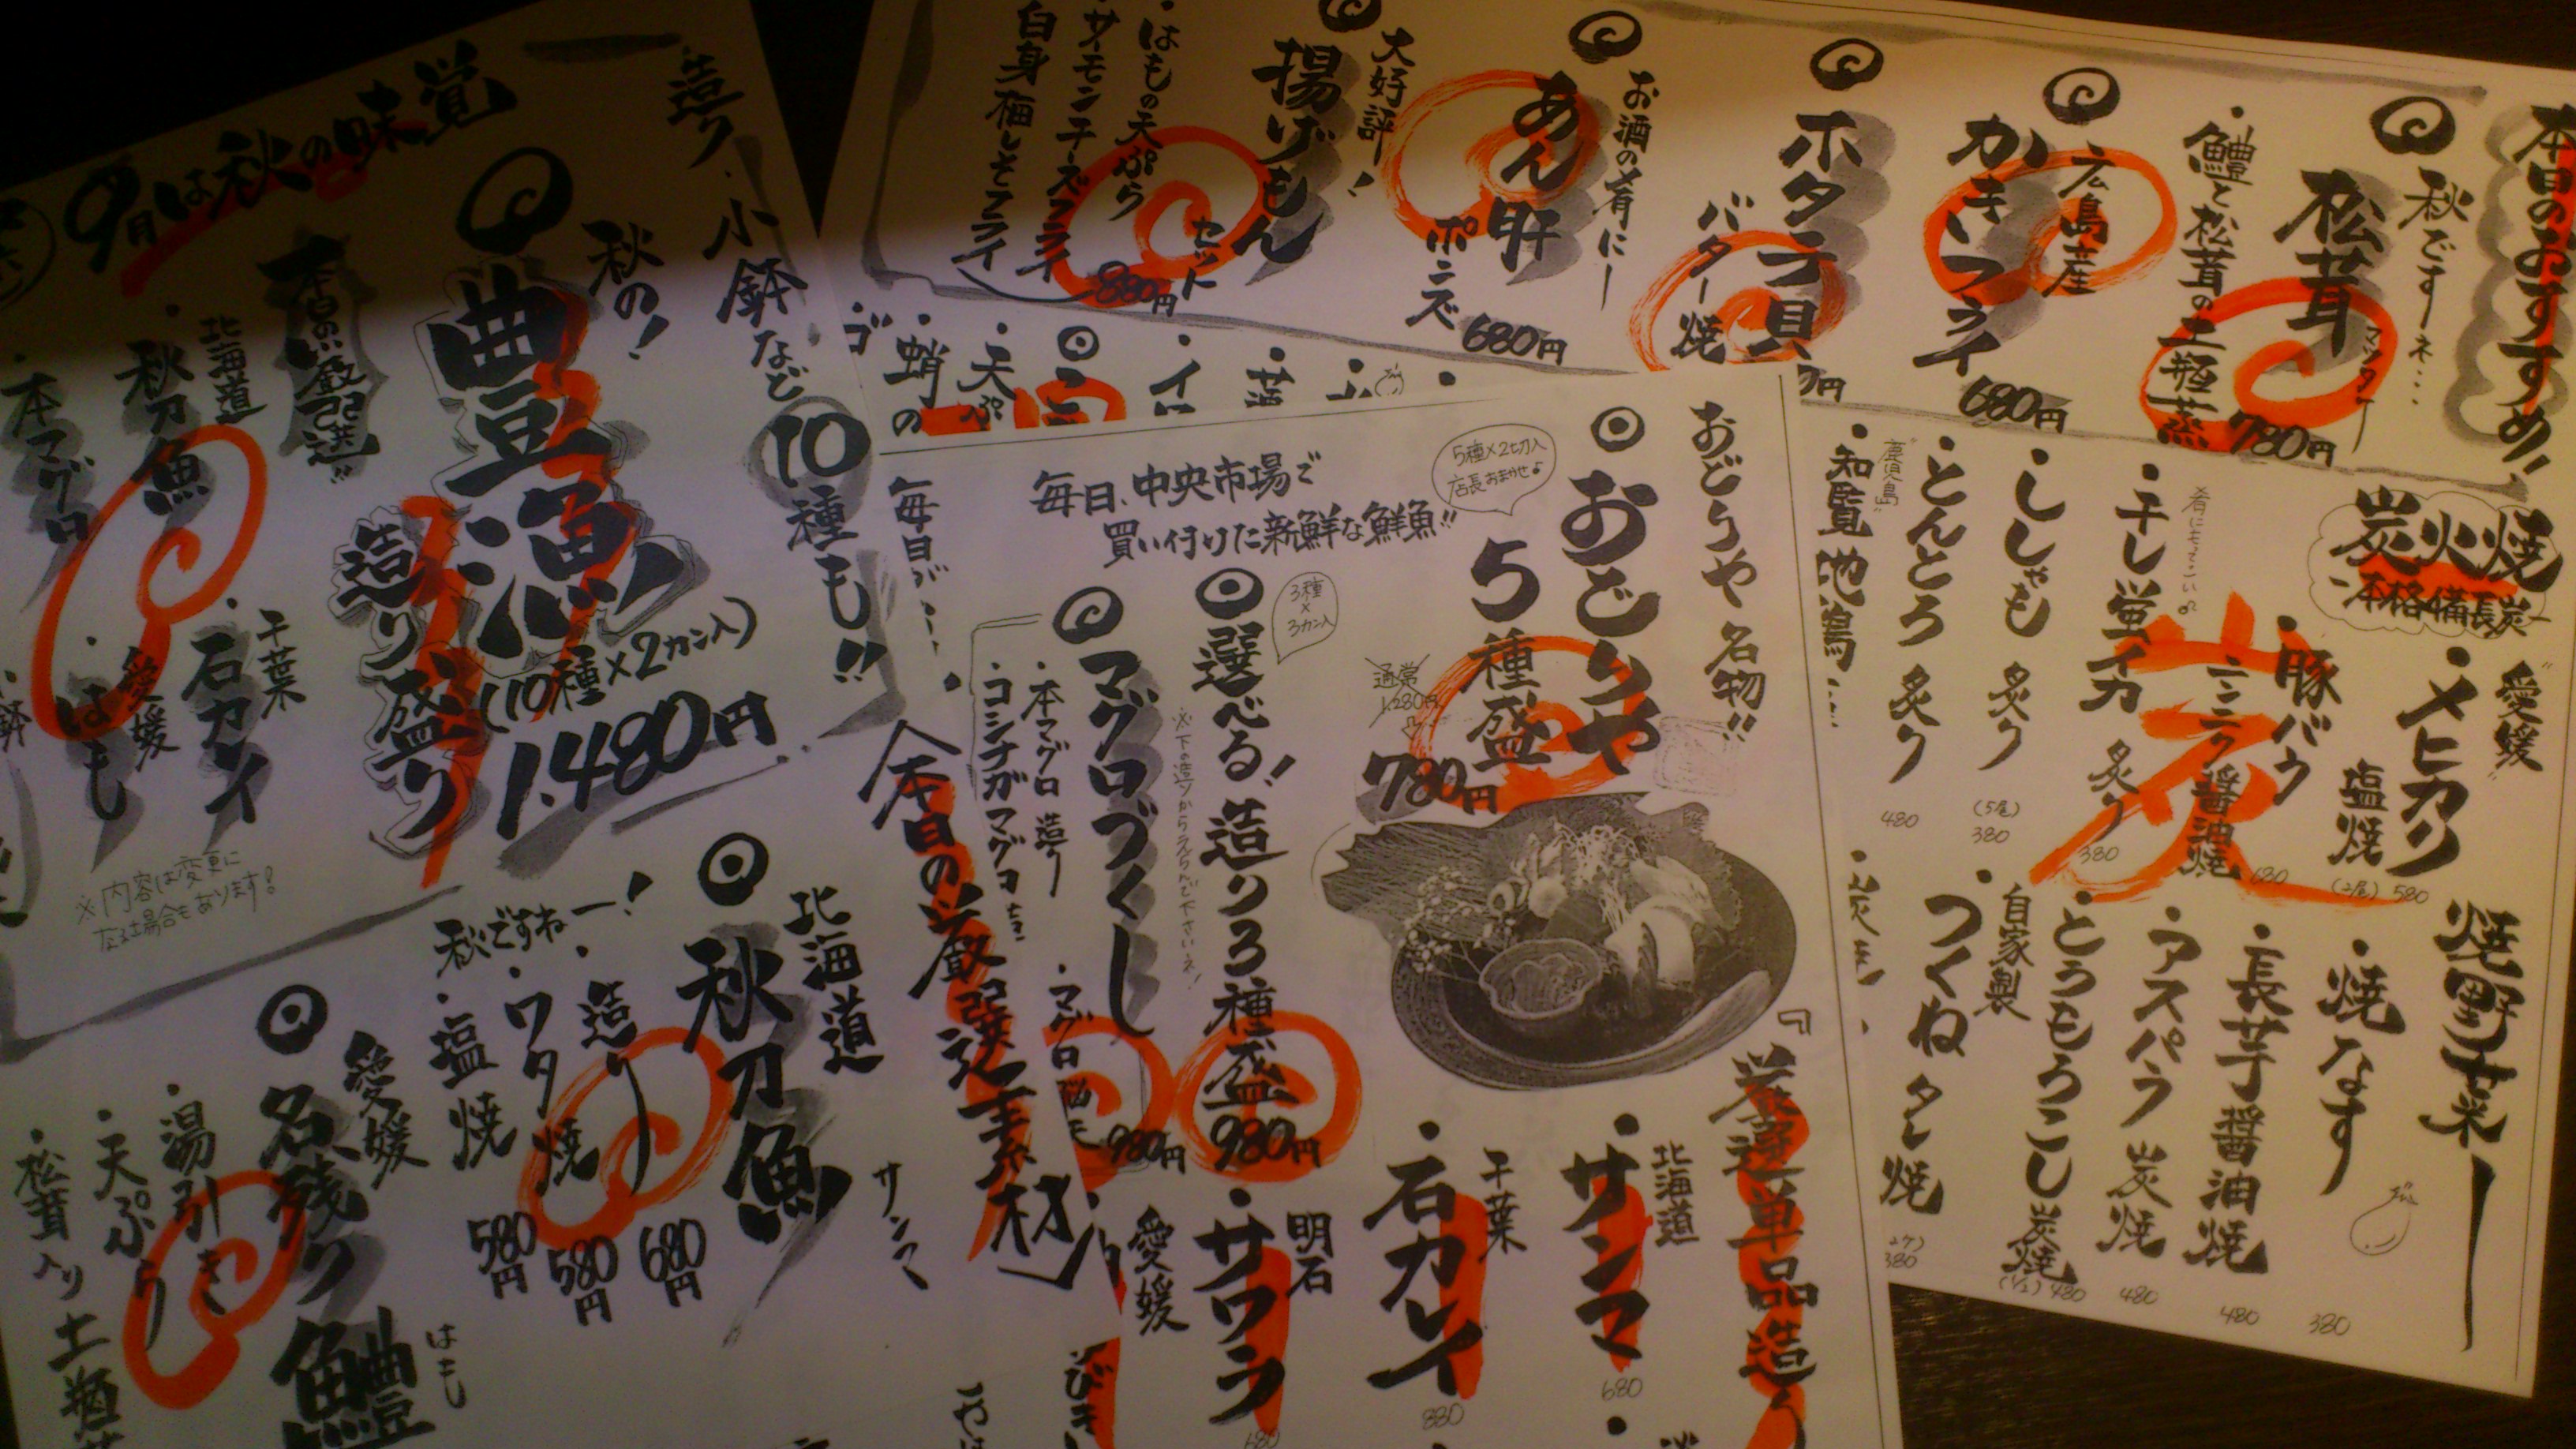 本日のおすすめ!
秋ですネ…
松茸
マツタケ
鱧と松茸の土瓶蒸
780円
広島産
かきフライ
680円
ホタテ貝
バター焼
お酒の肴にー
あん肝
ポンズ
680円
大好評!
揚げもん
セット
880円
・はもの天ぷら
・サーモンチーズフライ
・白身梅しそフライ
炭火焼
-本格備長炭-
"愛媛"
・メヒカリ
塩焼
(2尾) 580
・豚バラ
ニンニク醤油焼
680
炭
・干し蛍イカ
炙り
380
・ししゃも
炙り
(5尾)
380
・とんとろ
炙り
480
"鹿児島"
・知覧地鶏
焼野菜ー
・焼なす
380
・長芋醤油焼
480
・アスパラ炭焼
480
・とうもろこし炭焼
(1/2) 480
自家製
・つくね タレ焼
380
・天ぷ
蛸の
おどりや名物!!
おどりや
5種盛
5種×2切入
店長おまかせ♪
通常
1.280円
780円
毎日、中央市場で
買い付けた新鮮な鮮魚!!
選べる!造り3種盛
3種
×
3カン入
※下の造りからえらんで下さいネ!
980円
マグロづくし
・本マグロ 造り
・コシナガマグロ
・マグロ
980円
『厳選単品造り
北海道
・サンマ
680
千葉
・石カレイ
880
明石
・サワラ
680
愛媛
毎日が…
造り・小鉢など
10種も!!
秋の!
豊漁
造り盛り
(10種×2カン入)
1.480円
9月は秋の味覚
本日の厳選!!
北海道
・秋刀魚
・本マグロ
千葉
・石カレイ
愛媛
・はも
※内容は変更に
なる場合もあります!
本日の厳選素材
北海道
秋刀魚
サンマ
秋ですねー!
・造り
680円
・ワタ焼
580円
・塩焼
580円
愛媛
名残り鱧
はも
・湯引き
・天ぷら
・松茸入り土瓶